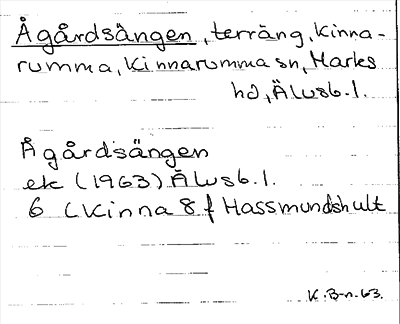 Ågårdsängen, terräng, Kinna-
rumma, Kinnarumma sn, Marks
hd, Älvsb. l.
Ågårdsängen
ek (1963) Älvsb. l.
6 C Kinna 8 f Hassmundshult
K. B-n. 63.